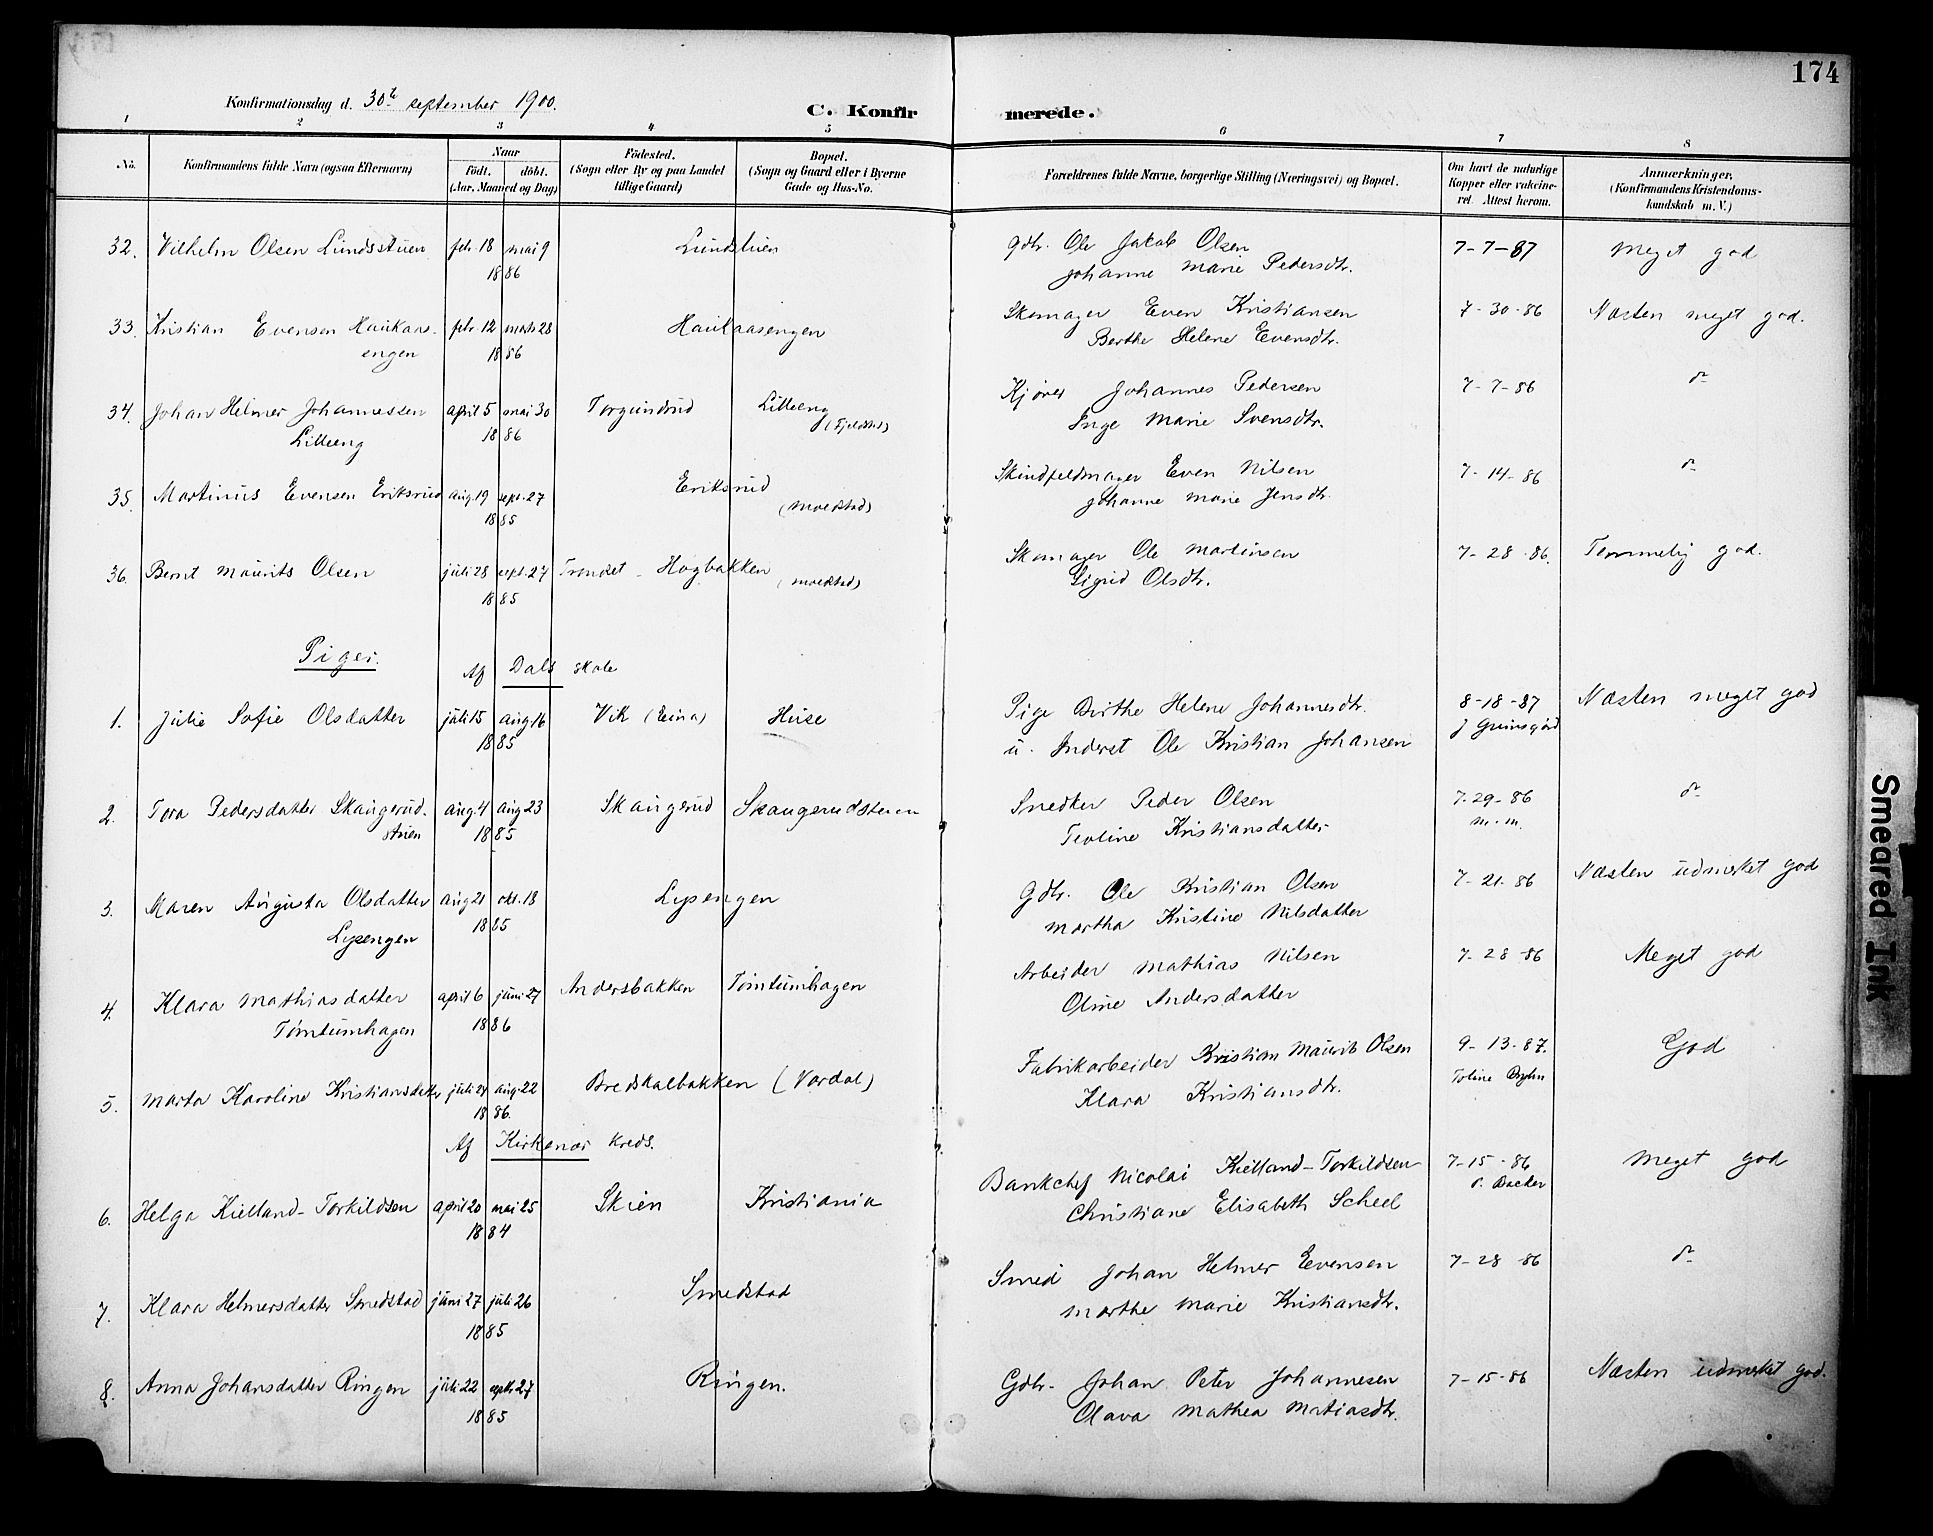 174
Konfirmationsdag d. 30te september 1900.
C. Konfirmerede.
1 2 3 4 5 6 7 8
No.
Konfirmandens fulde Navn (ogsaa Efternavn)
Naar
födt. döbt.
(Aar, Maaned og Dag)
Födested.
(Sogn eller By og paa Landet
tillige Gaard)
Bopæl.
(Sogn og Gaard eller i Byerne
Gade og Hus-No.
Forældrenes fulde Navne, borgerlige Stilling (Næringsvei) og Bopæl.
Om havt de naturlige
Kopper eller vakcine-
ret. Attest herom.
Anmærkninger,
(Konfirmandens Kristendoms-
kundskab m. V.)
32. Vilhelm Olsen Lundsstuen febr. 18 mai 9 Lundstuen Gdbr. Ole Jakob Olsen 7-7-87 Meget god
1886 Johanne Marie Pedersdtr.
33. Kristian Evensen Haukaas- febr. 12 marts 28 Haukaasengen Skomager Even Kristiansen 7-30-86 Næsten meget god.
engen 1886 Berthe Helene Evensdtr.
34. Johan Helmer Johannessen april 5 mai 30 Torgunrud Lilleeng Kjører Johannes Pedersen 7-7-86 do
Lilleeng 1886 (Fjeldstad) Inge Marie Svensdtr.
35. Martinus Evensen Eriksrud aug. 19 sept. 27 Eriksrud Skindfeldmager Even Nilsen 7-14-86 do
1885 (Moelstad) Johanne Marie Jensdtr.
36. Bernt Maurits Olsen juli 28 sept. 27 Trondet - Hagbakken Skomager Ole Martinsen 7-28-86. Temmelig god.
1885 (Moelstad) Sigrid Olsdtr.
Piger.
Af Dals skole
1. Julie Sofie Olsdatter juli 15 aug 16 Vik (Eina) Huse Pige Berthe Helene Johannesdtr. 8-18-87 Næsten meget god
1885 u. Inderst Ole Kristian Johansen J Grimsgård
2. Tora Pedersdatter Skaugerud- aug. 4 aug 23 Skaugerud Skaugerudstuen Snedker Peder Olsen 7-29-86 do
stuen 1885 Teoline Kristiansdatter m.m.
3. Maren Augusta Olsdatter aug 21 okt. 18 Lysengen Gdbr. Ole Kristian Olsen 7-21-86 Næsten udmerket god
Lysengen 1885 Martha Kristine Nilsdatter
4. Klara Mathiasdatter april 6 juni 27 Andersbakken Tømtumhagen Arbeider Mathias Nilsen 7-28-86 Meget god
Tømtumhagen 1886 Oline Andersdatter
5. Marta Karoline Kristiansdatter juli 24 aug. 22 Bredskalbakken (Vardal) Fabrikarbeider Kristian Maurits Olsen 9-13-87. God
1886. Klara Kristiansdtr. Toline
Af Kirkenær kreds.
6. Helga Kielland-Torkildsen april 20 mai 25 Skien Kristiania Bankchef Nicolai Kielland-Torkildsen 7-15-86 Meget god
1884 Christiane Elisabeth Scheel Backer
7. Klara Helmersdatter Smedstad juni 27 juli 26 Smedstad Smed Johan Helmer Evensen 7-28-86 do
1885 Marthe Marie Kristiansdtr.
8. Anna Johansdatter Ringen juli 22 sept. 27 Ringen. Gdbr. Johan Peter Johannesen 7-15-86 Næsten udmerket god.
1885 Olava Mathea Matiasdtr.
Smeared Ink